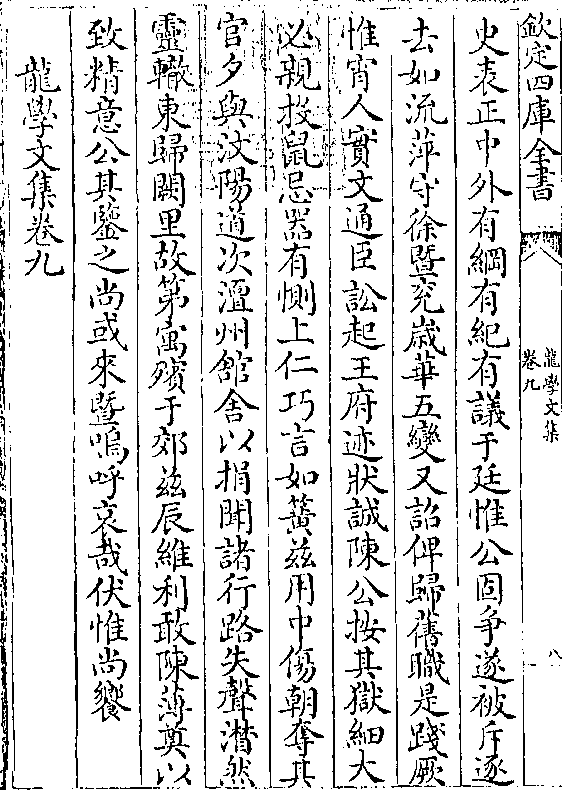 欽定四庫全書
龍學文集
卷九
八
史表正中外有綱有紀有議于廷惟公固爭遂被斥逐
去如流萍守徐暨兖歲華五變又詔俾歸舊職是踐厥
惟宵人實文通臣訟起王府迹狀誠陳公按其獄細大
必親投鼠忌器有惻上仁巧言如簧兹用中傷朝奪其
官夕與汶陽道次澶州館舍以捐聞諸行路失聲潸然
靈轍東歸闕里故第寓殯于郊兹辰維利敢陳薄奠以
致精意公其鑒之尚或來暨嗚呼哀哉伏惟尚饗
龍學文集卷九